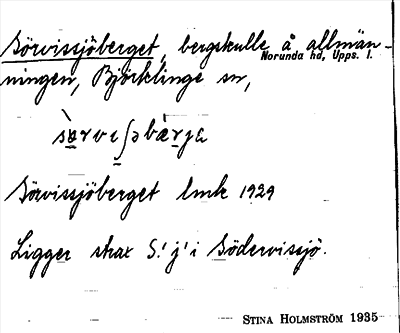 Sörvissjöberget, bergskulle å allmän-
Norunda hd, Upps. l.
ningen, Björklinge sn,
Sörvissjöberget lmk 1929
Ligger strax S. i Södervissjö.
STINA HOLMSTRÖM 1935